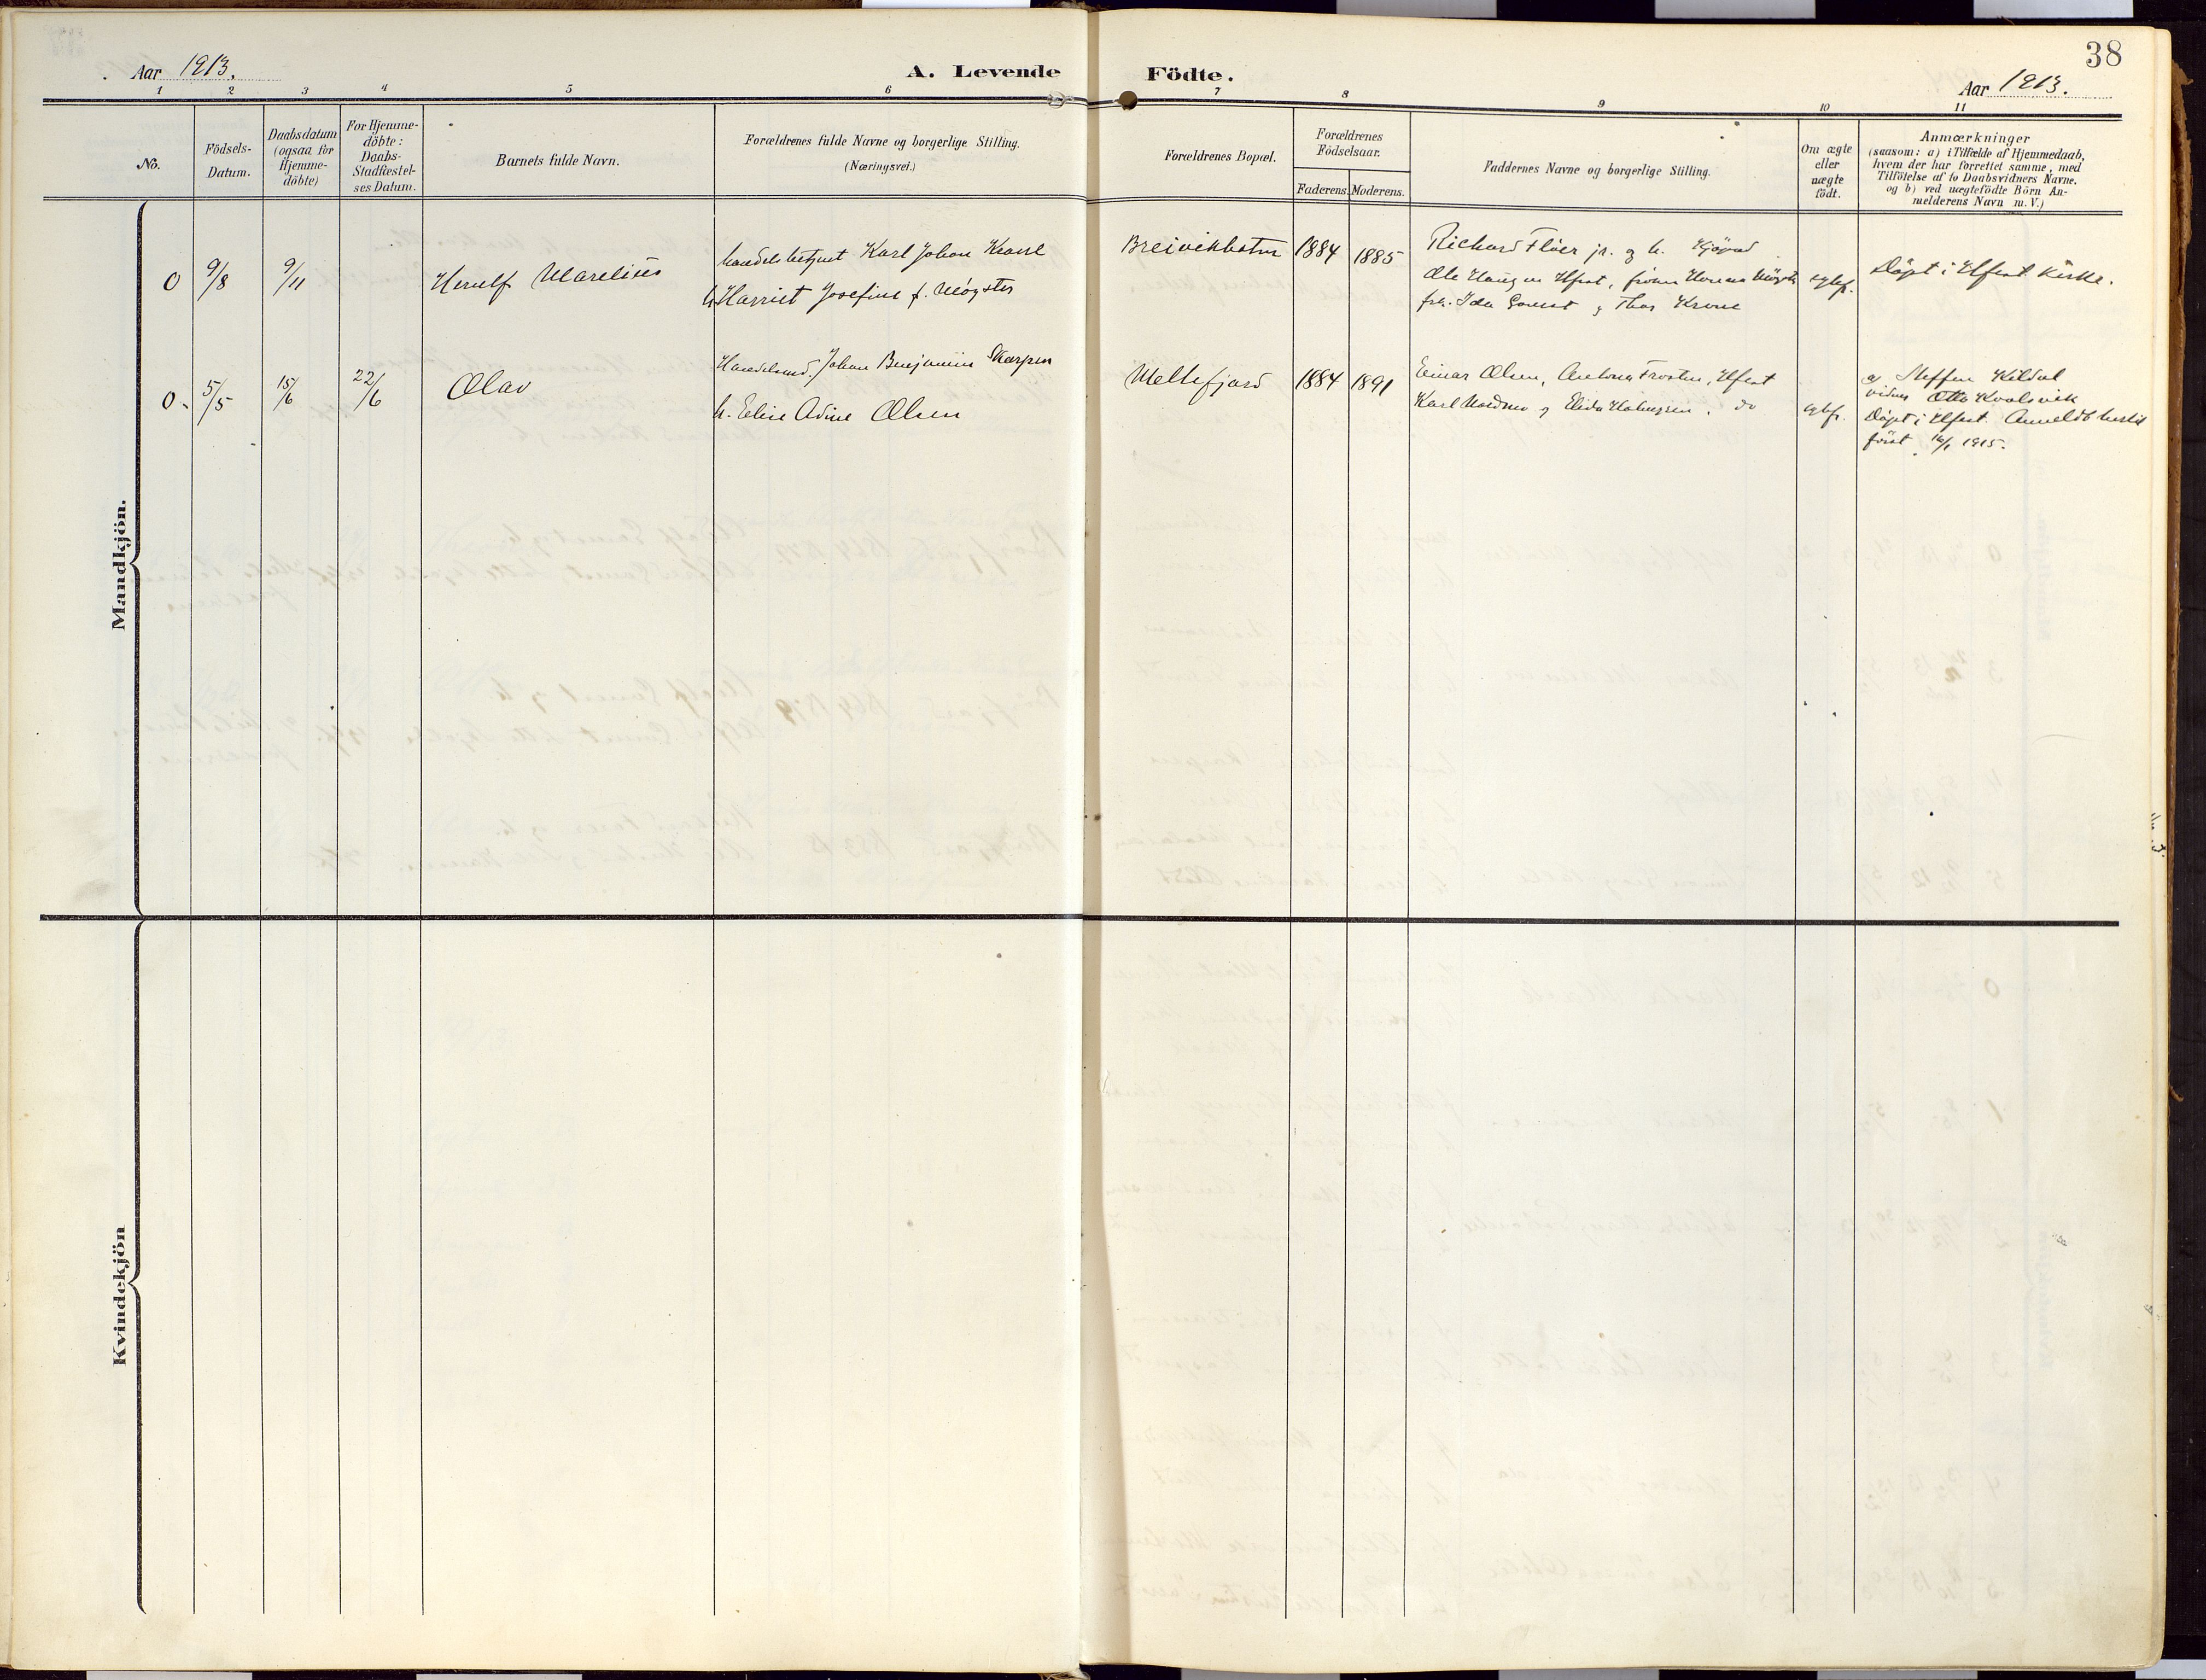 Aar 1913.
A. Levende Födte.
38
Aar 1913.
1 2 3 4 5 6 7 8 9 10 11
No.
Födsels-
Datum.
Daabsdatum
(ogsaa for
Hjemme-
döbte)
For Hjemme-
döbte:
Daabs-
Stadfæstel-
ses Datum.
Barnets fulde Navn.
Forældrenes fulde Navne og borgerlige Stilling.
(Næringsvei.)
Forældrenes Bopæl.
Forældrenes
Födselsaar.
Faderens. Moderens.
Faddernes Navne og borgerlige Stilling.
Om ægte
eller
uægte
födt.
Anmærkninger
(saasom: a) i Tilfælde af Hjemmedaab,
hvem der har forrettet samme, med
Tilföielse af to Daabsvidners Navne.
og b) ved uægtefödte Börn An-
melderens Navn m. V.)
Mandkjön.
0
9/8
9/11
Herulf Marelius
handelsbetjent Karl Johan Krane
h. Harriet Josefine f. Møgster
Breivikbotn
1884
1885
Richard Fløer jr. og h.
Ole Haugen Hfest,
frk. Ida og Thor Krane
egtef.
Døpt i Hfest Kirke.
0.
5/5
15/6
22/6
Olav
Handelsmd. Johan Benjamin Skarpen
h. Eelin Adine Olsen
Meltefjord
1884
1891
Einar Olsen, Antona Frosten, Hfest
Karl og Elida do
egtef.
Steffen Kildal
Otto Kvalsvik
Døpt i Hfest. Anmeldt
først 16/1 1915.
Kvindekjön